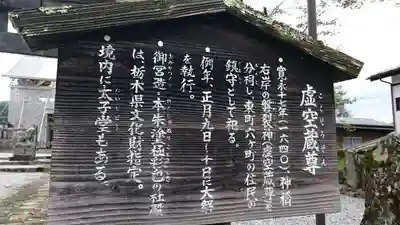 虚空蔵尊
・寛永十七年(一六四〇)、神橋
右岸の磐裂神(虚空蔵尊)を
分祠し、東町六ヶ町の住民の
鎮守として祀る。
・例年、正月九日～十日に大祭
を執行。
・御宮造・本朱塗極彩色の社殿
は、栃木県文化財指定。
・境内に太子堂もある。